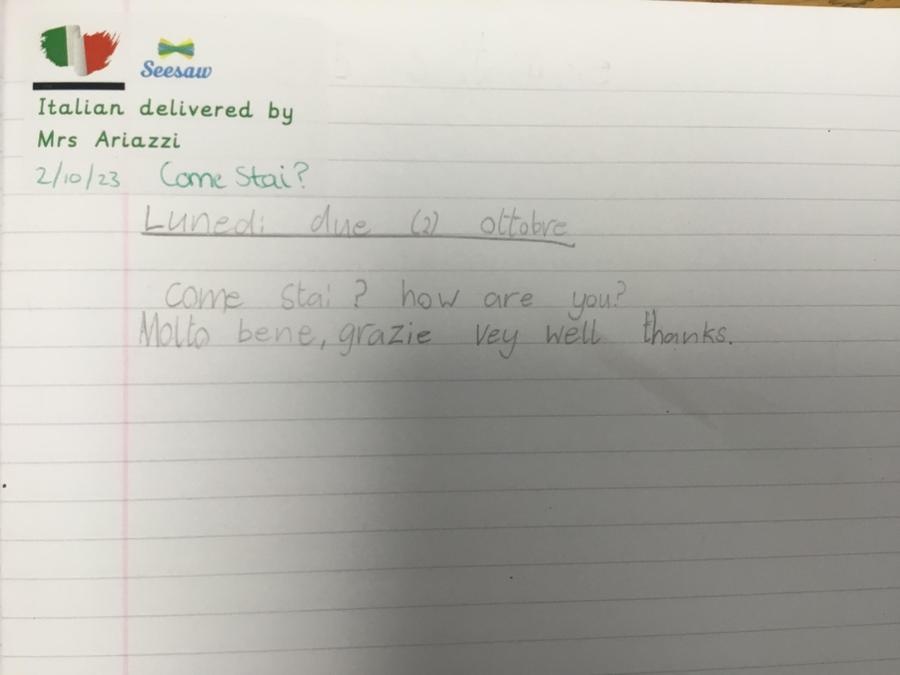 Seesaw
Italian delivered by
Mrs Ariazzi
2/10/23 Come Stai?
Lunedi due (2) ottobre
Come Stai? how are you?
Molto bene, grazie vey well thanks.